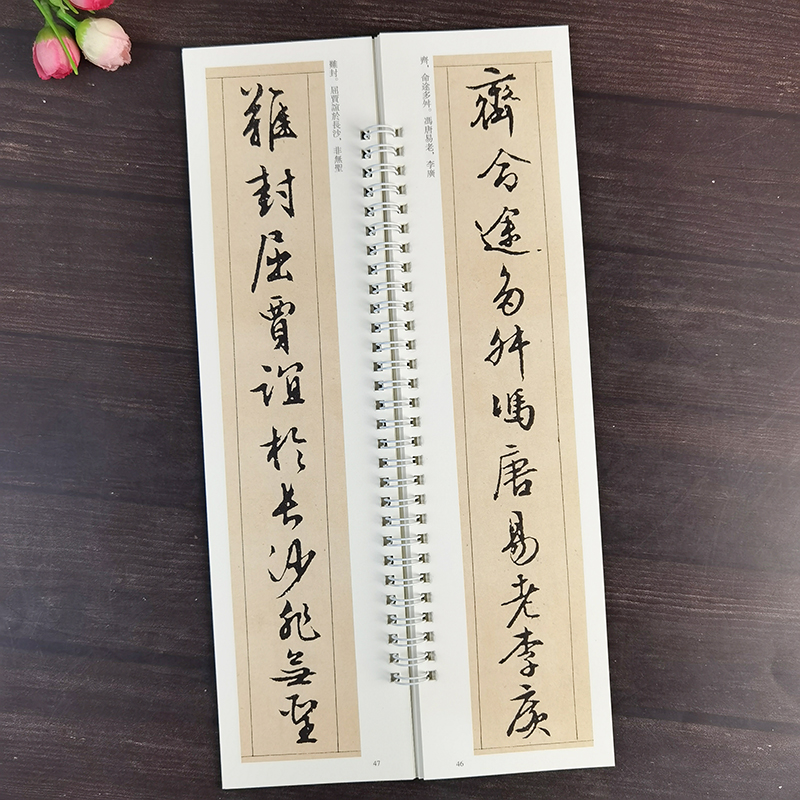 齊命途多舛馮唐易老李廣
齊，命途多舛。馮唐易老，李廣
46
難封。屈賈誼於長沙，非無聖
難封屈賈誼於長沙非無聖
47